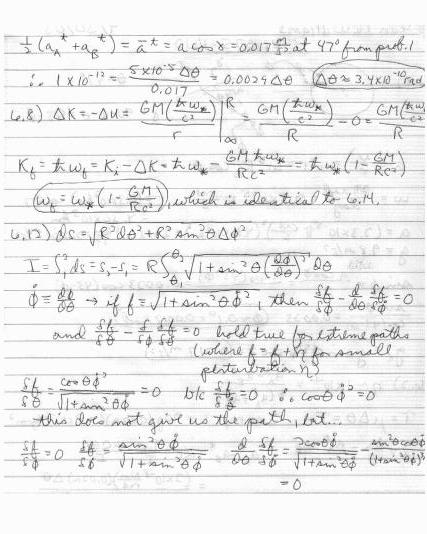 ½(a_A^t + a_B^t) = a̅^t = a cos γ = 0.017 m/s² at 47° from prob. 1
∴ 1×10⁻¹² = 5×10⁻⁵Δθ / 0.017 = 0.0029Δθ (Δθ ≈ 3.4×10⁻¹⁰ rad
6.8) ΔK = -Δu = GM(ħω*/c²)/r |^R_∞ = GM(ħω*/c²)/R - 0 = GM(ħω*/c²)/R
K_f = ħω_f = K_i - ΔK = ħω* - GMħω*/Rc² = ħω*(1 - GM/Rc²)
(ω_f = ω*(1 - GM/Rc²)), which is identical to 6.14.
6.12) ds = √R²dθ² + R² sin²θ Δφ²
I = ∫₁² ds = s₂-s₁ = R∫_θ₁^θ₂ √1 + sin²θ(dφ/dθ)² dθ
φ̇ ≡ dφ/dθ → if f = √1 + sin²θ φ̇², then δf/δφ - d/dθ δf/δφ̇ = 0
and δf/δθ - δ/δφ δf/δθ̇ = 0 hold true for extreme paths
(where f = f + η for small
perturbation η)
δf/δθ = cosθ φ̇²/√1 + sin²θ φ̇ = 0 b/c δf/δθ̇ = 0 ∴ cosθ φ̇² = 0
this does not give us the path, but...
δf/δφ = 0 δf/δφ̇ = sin²θ φ̇/√1 + sin²θ φ̇ d/dθ δf/δφ̇ = 2cosθ φ̇/√1 + sin²θ φ̇ - sin²θ cosθ φ̇/(1 + sin²θ φ̇)³
= 0